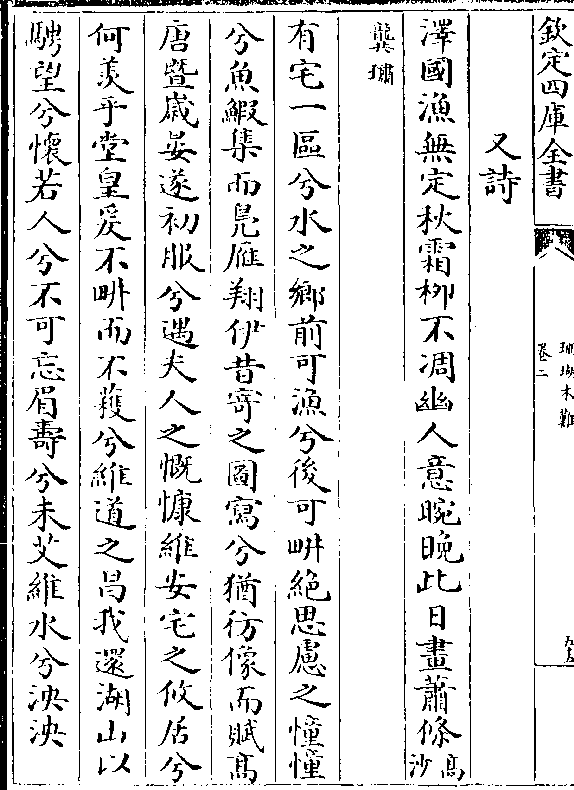 欽定四庫全書
珊瑚木難
卷二
又詩
澤國漁無定秋霜柳不凋幽人意晼晚此日畫蕭條高沙
龔璛
有宅一區兮水之鄉前可漁兮後可畊絶思慮之憧憧
兮魚鰕集而鳧雁翔伊昔寄之圖寫兮猶彷像而賦高
唐暨歳晏遂初服兮遇夫人之慨慷維安宅之攸居兮
何羨乎堂皇爰不畊而不穫兮維道之昌我還湖山以
騁望兮懷若人兮不可忘眉壽兮未艾維水兮泱泱